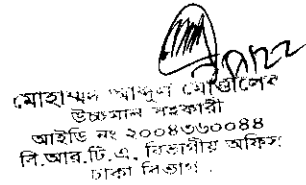 মোহাম্মদ আব্দুল মোত্তালেব
উচ্চমান সহকারী
আইডি নং ২০০৪৩৬০০৪৪
বি.আর.টি.এ, বিভাগীয় অফিস
ঢাকা বিভাগ